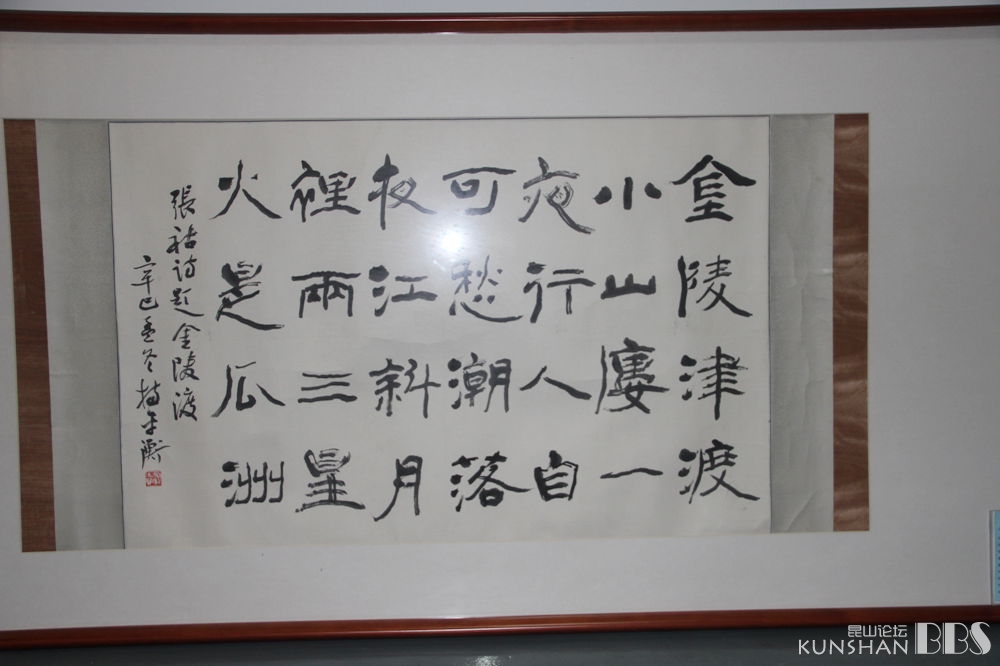 金陵津渡
小山廔一
夜行人自
可愁潮落
夜江斜月
裡兩三星
火是瓜洲
張祜詩題金陵渡
辛巳孟冬
昆山论坛
KUNSHAN BBS